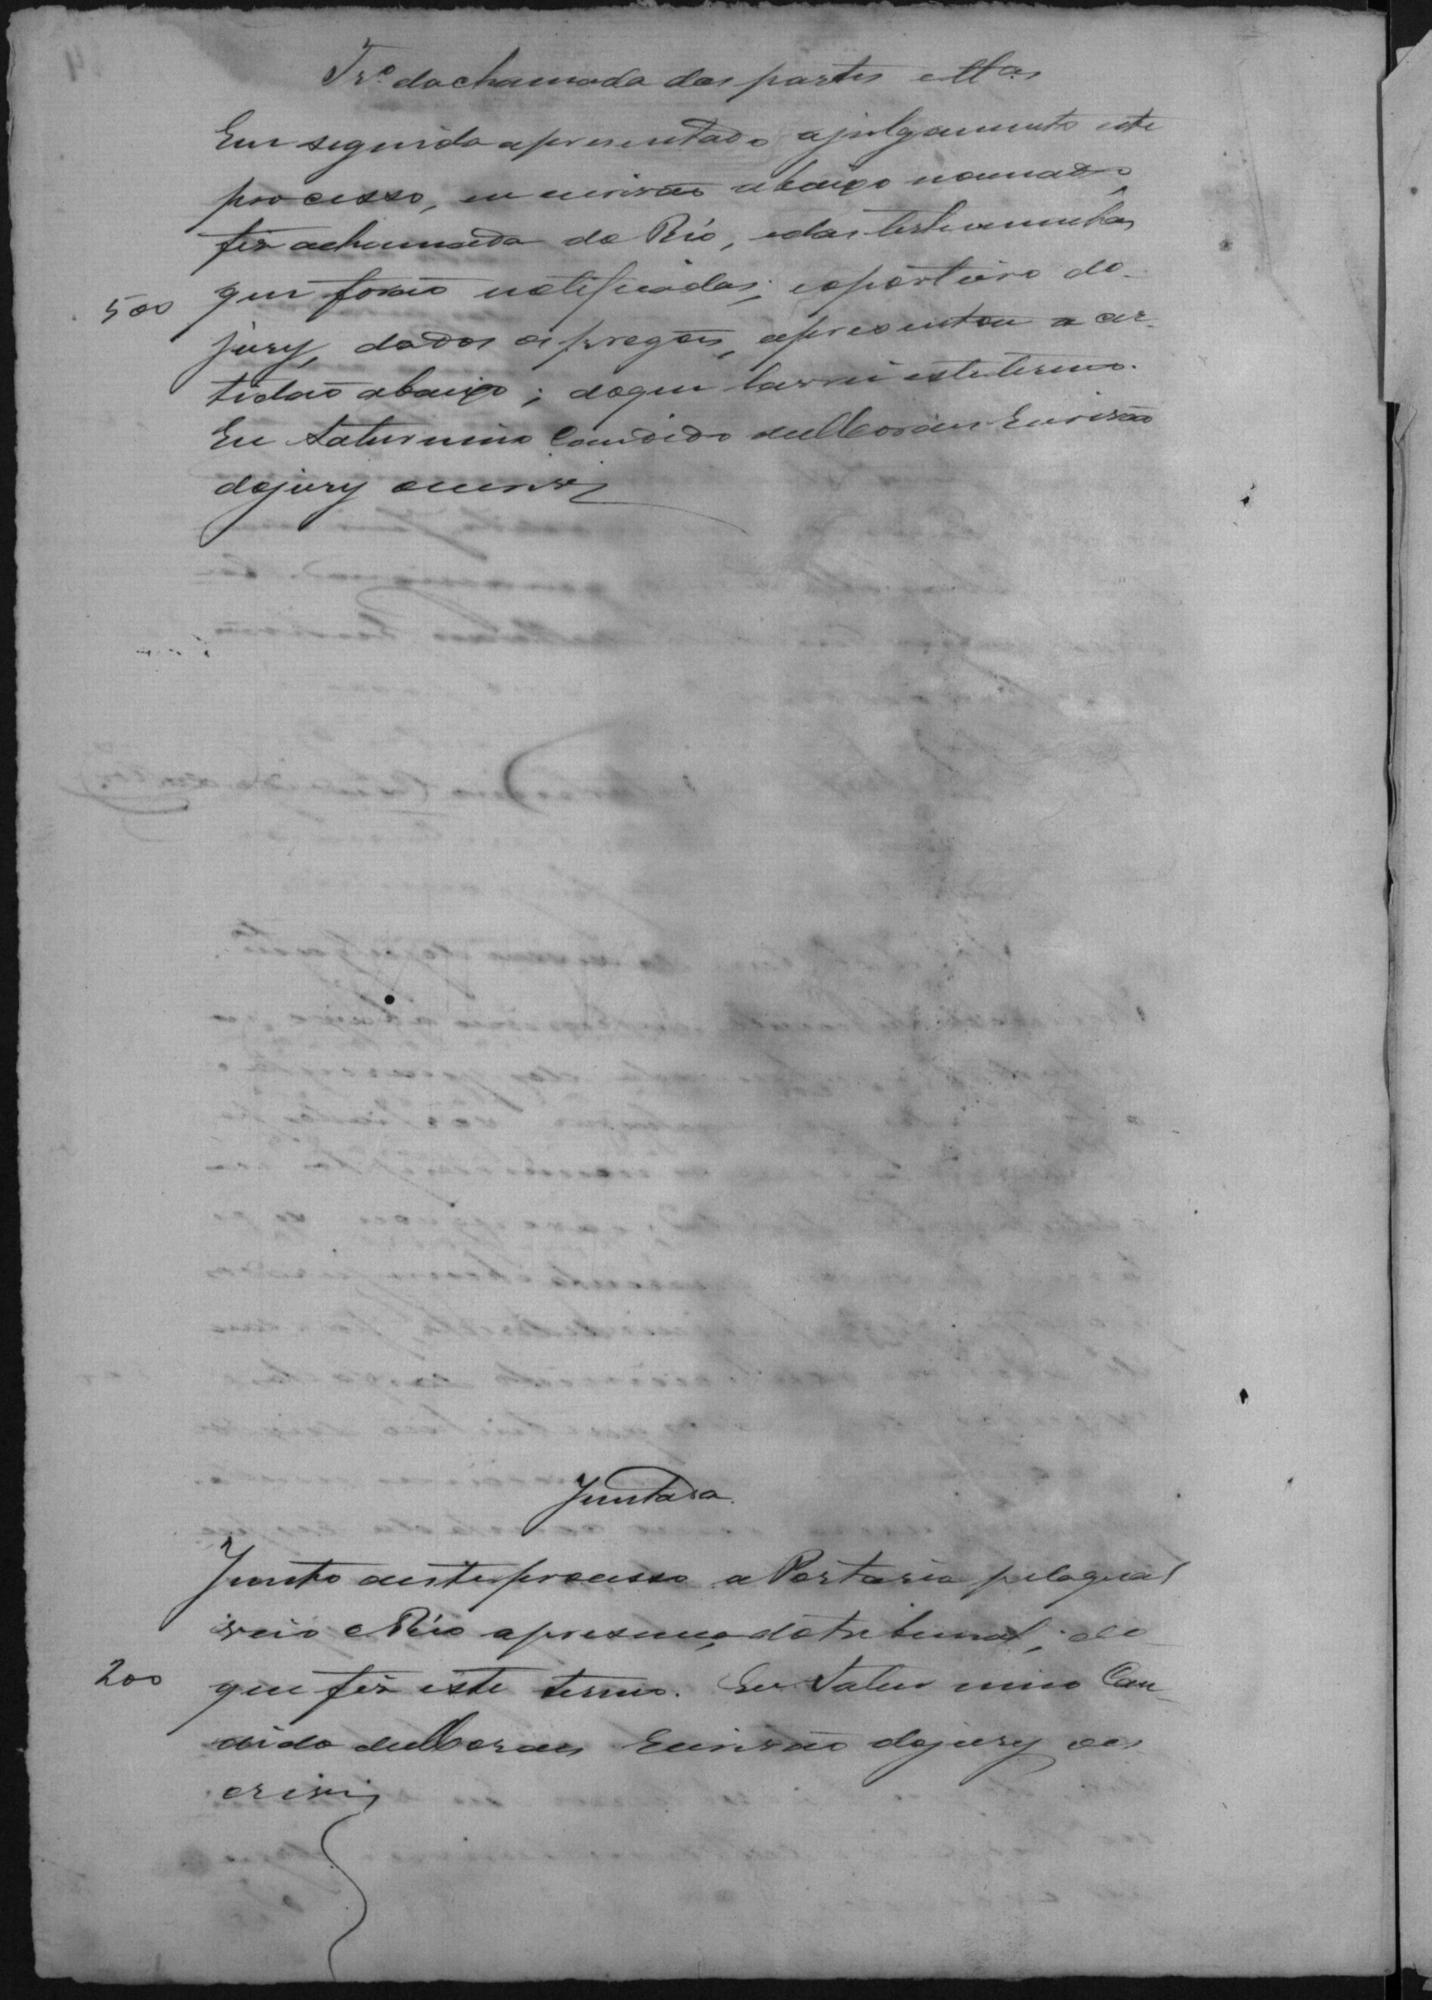 Tr.º da chamada das partes e tt.as
Em seguida apresentado a julgamento este
processo, eu escrivão abaixo nomeado
fiz a chamada do Réo, e das testemunhas
500 que forão notificadas; e o porteiro do
jury, dados os pregões, apresentou a cer-
tidão abaixo; do que lavrei este termo.
Eu Saturnino Candido de Moraes Escrivão
do jury o escrevi
Juntada.
Junto a este processo a Portaria pela qual
veio o Réo a presença do tribunal; do
200 que fiz este termo. Eu Saturnino Can-
dido de Moraes Escrivão do jury o es
crevi